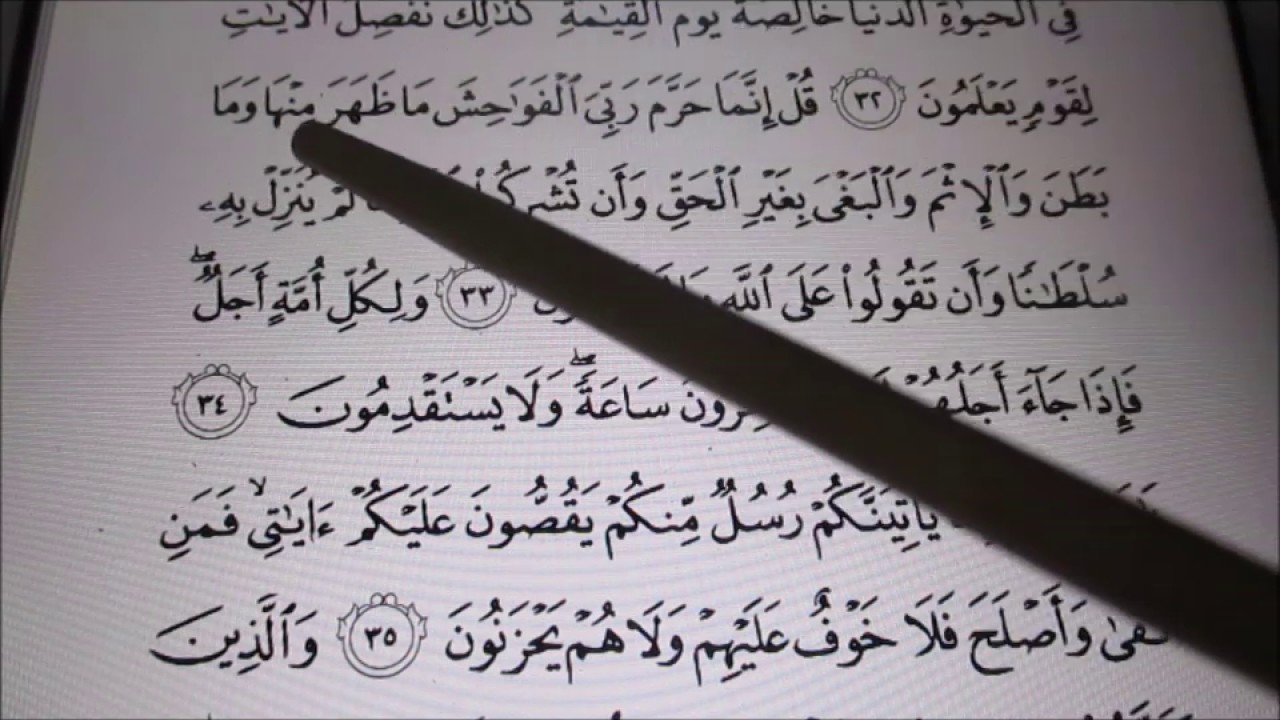 فِي الْحَيَوٰةِ الدُّنْيَا خَالِصَةً يَوْمَ الْقِيَٰمَةِ كَذَٰلِكَ نُفَصِّلُ الْأَيَٰتِ
لِقَوْمٍ يَعْلَمُونَ ٣٢ قُلْ إِنَّمَا حَرَّمَ رَبِّيَ ٱلْفَوَٰحِشَ مَا ظَهَرَ مِنْهَا وَمَا
بَطَنَ وَٱلْإِثْمَ وَٱلْبَغْىَ بِغَيْرِ ٱلْحَقِّ وَأَن تُشْرِكُوا۟ لَمْ يُنَزِّلْ بِهِۦ
سُلْطَٰنًا وَأَن تَقُولُوا۟ عَلَى ٱللَّهِ ٣٣ وَلِكُلِّ أُمَّةٍ أَجَلٌ ۖ
فَإِذَا جَآءَ أَجَلُهُمْ سَاعَةً ۖ وَلَا يَسْتَقْدِمُونَ ٣٤
يَأْتِيَنَّكُمْ رُسُلٌ مِّنكُمْ يَقُصُّونَ عَلَيْكُمْ ءَايَٰتِى ۙ فَمَنِ
وَأَصْلَحَ فَلَا خَوْفٌ عَلَيْهِمْ وَلَا هُمْ يَحْزَنُونَ ٣٥ وَٱلَّذِينَ